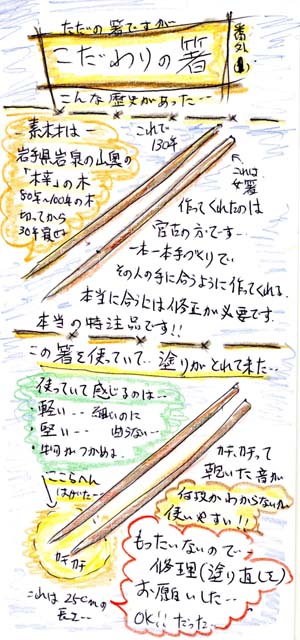 ただの箸ですが
こだわりの箸
番外(1)
こんな歴史があった‥
素木は
岩手県岩泉の山奥の
「梓」の木
80年~100年の木
切ってから
30年寝せ
これで
130年
これは
女箸
作ってくれたのは
宮古の方です‥
一本一本手づくりで
その人の手に合うように作ってくれる.
本当に合うには修正が必要です.
本当の特注品です!!
この箸を使っていて‥塗りがとれて来た‥
使っていて感じるのは‥
・軽い‥ 細いのに
・堅い‥ 曲らない‥
・物がつかめる.
ここらへん
はげた‥
カチカチ
カチ、カチって
乾いた音が
何故かわからないが
使いやすい!!
もったいないので‥
修理(塗り直しを)
お願いした‥
OK!!だった‥
これは25cmの
長さ‥